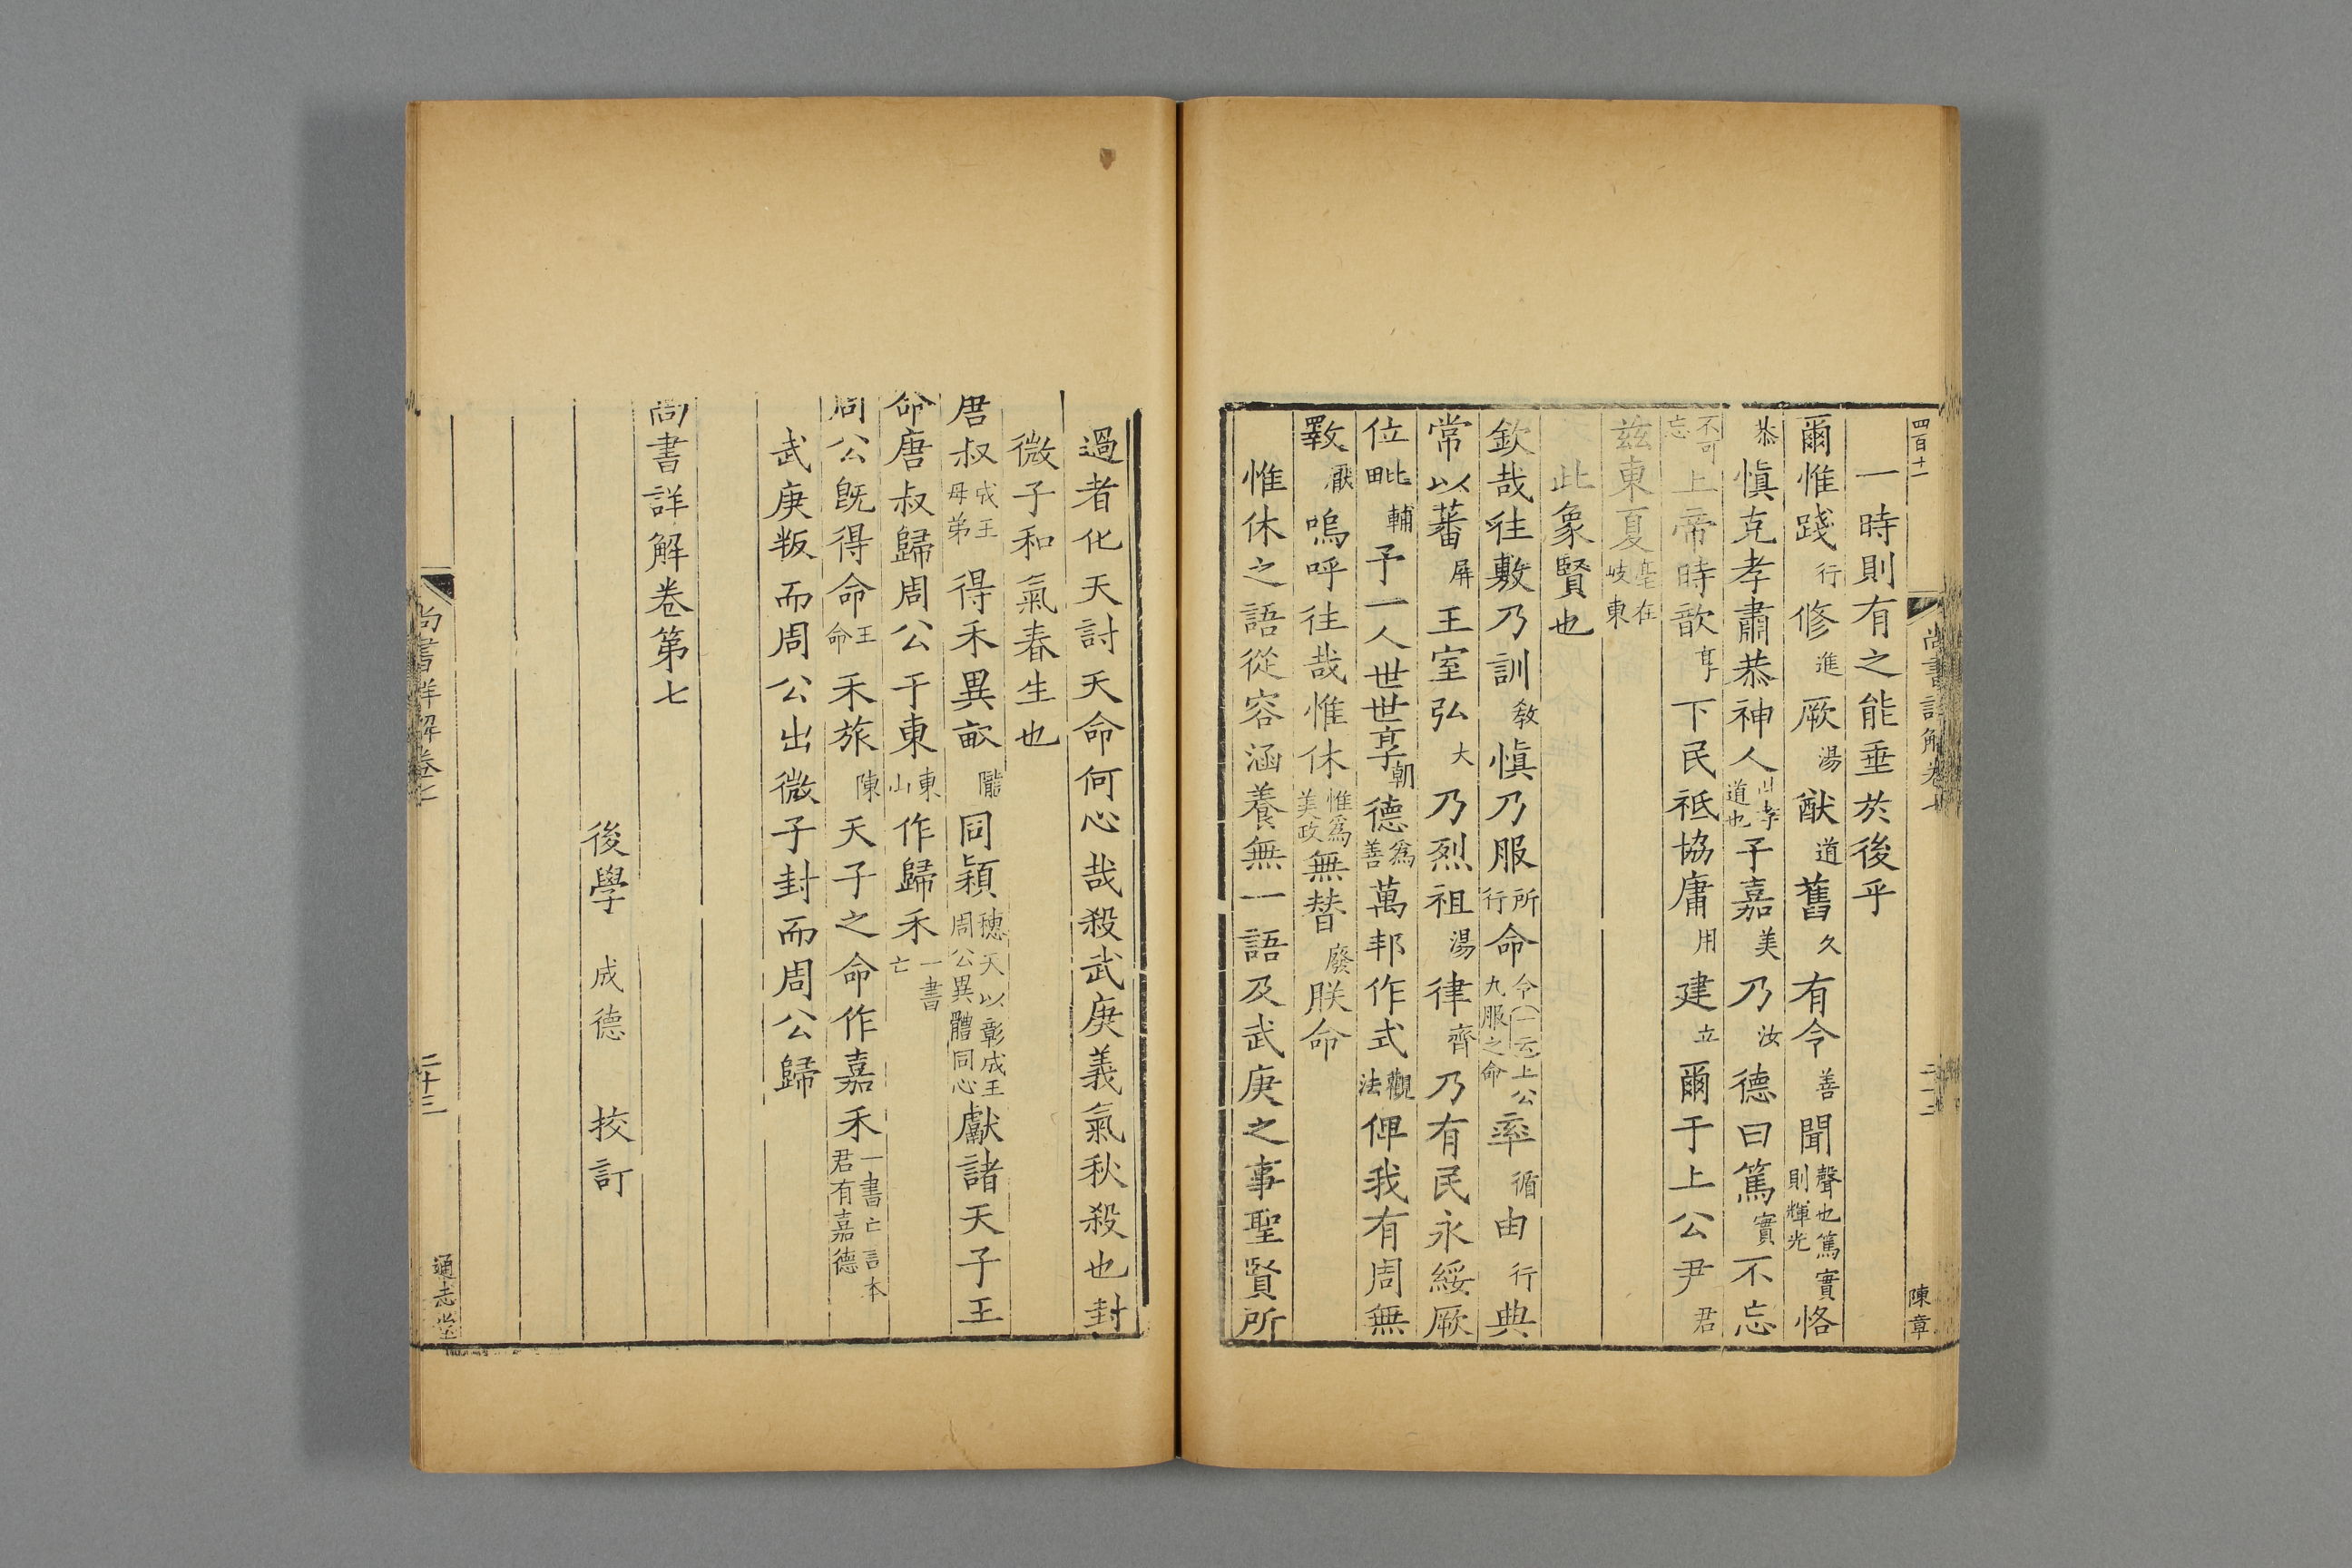 四百十一
尚書詳解卷七
二十二
陳章
一時則有之能垂於後乎
爾惟踐行修進厥湯猷道舊久有令善聞聲也篤實則輝光恪
恭慎克孝肅恭神人道也予嘉美乃汝德曰篤實不忘
不可忘上帝時歆享下民祗協庸用建立爾于上公尹君
茲東夏在岐東
此象賢也
欽哉往敷乃訓教慎乃服所行命今一云上公九服之命率循由行典
常以蕃屏王室弘大乃烈祖湯律齊乃有民永綏厥
位毗輔予一人世世享朝德爲善萬邦作式觀法俾我有周無
斁厭嗚呼往哉惟休惟爲美政無替廢朕命
惟休之語從容涵養無一語及武庚之事聖賢所
過者化天討天命何心哉殺武庚義氣秋殺也封
微子和氣春生也
唐叔成王母弟得禾異畝隴同穎穗天以彰成王周公異體同心獻諸天子王
命唐叔歸周公于東東山作歸禾一書亡
周公旣得命王命禾旅陳天子之命作嘉禾一書亡言本君有嘉德
武庚叛而周公出微子封而周公歸
尚書詳解卷第七
後學 成德 挍訂
尚書詳解卷七
二十三
通志堂